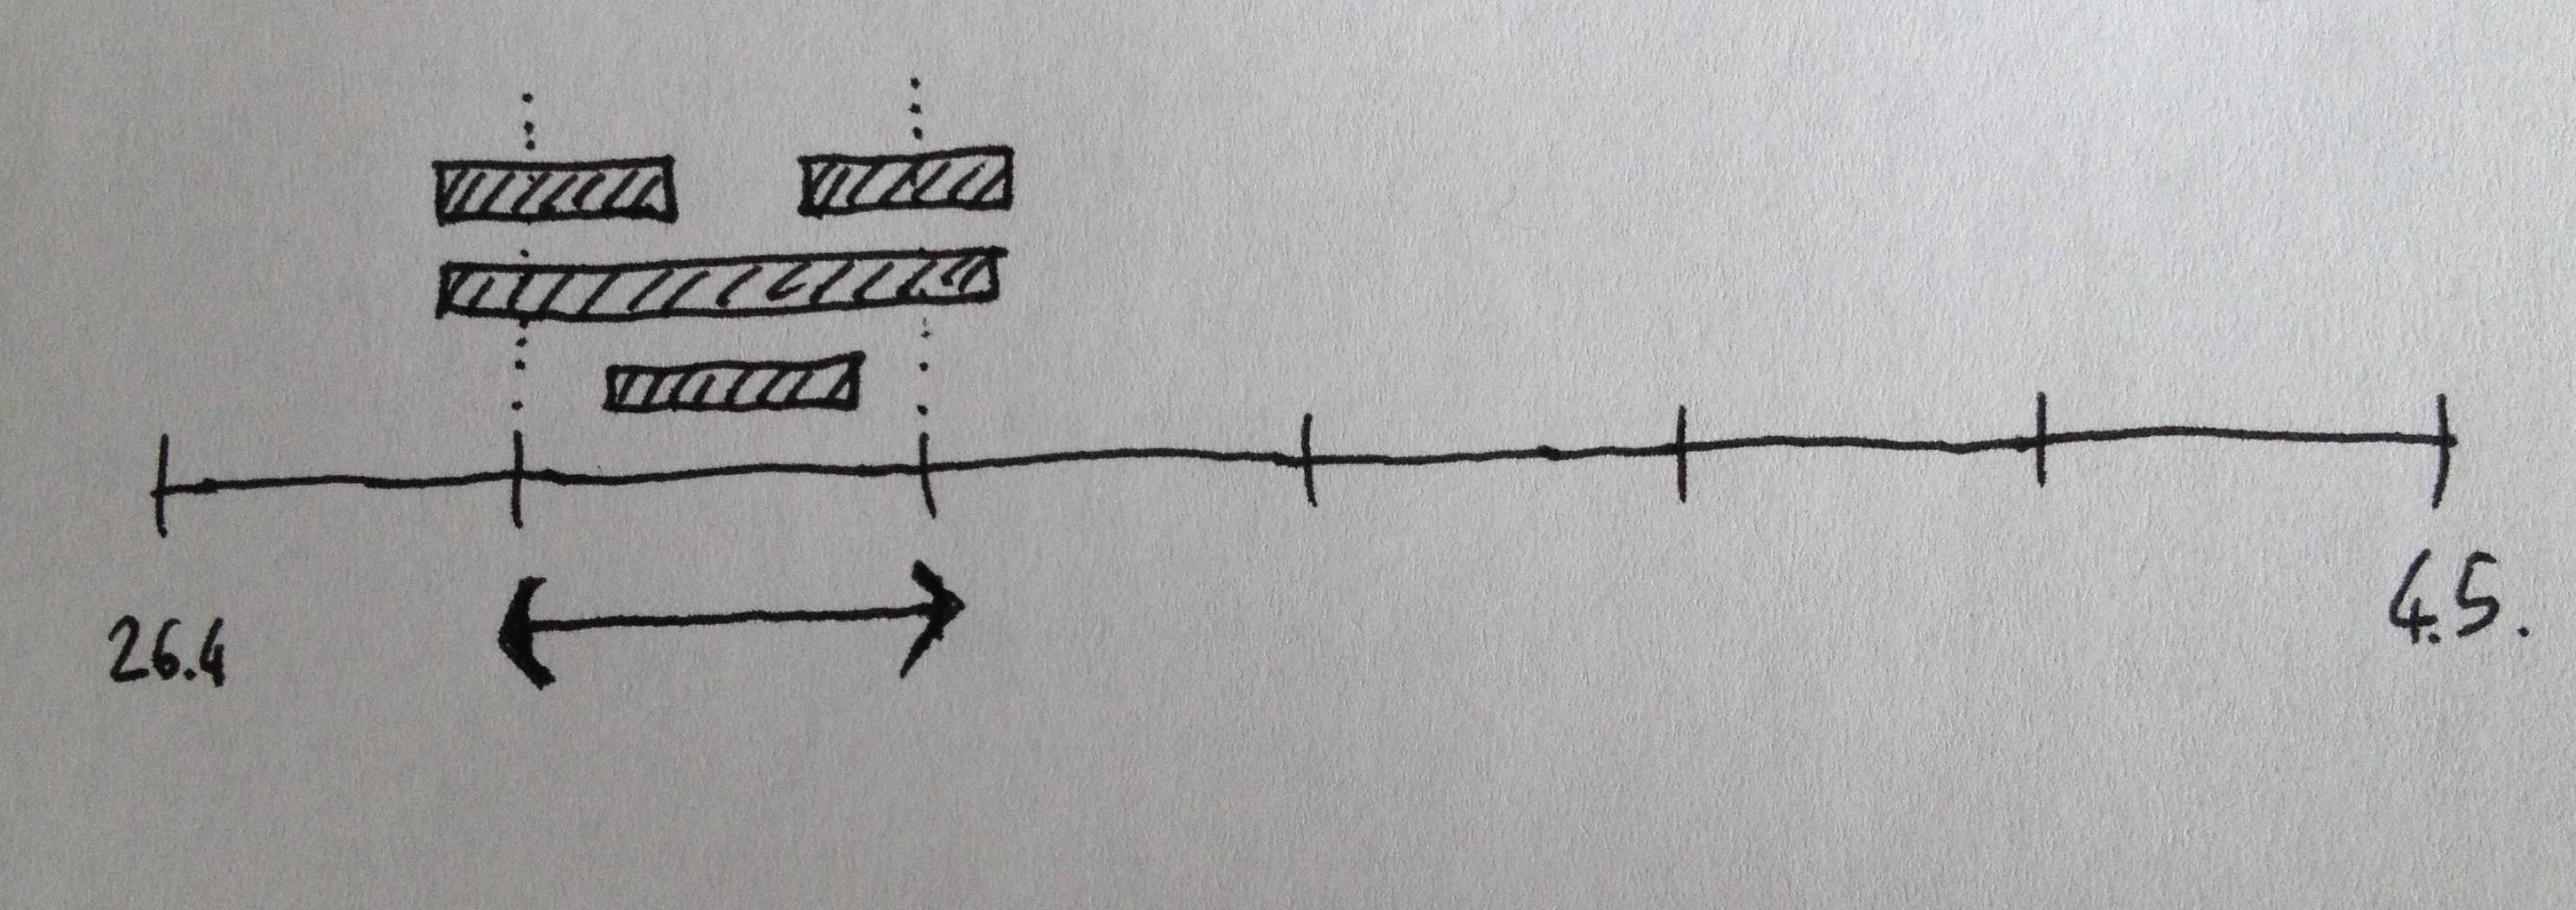 26.4
4.5.